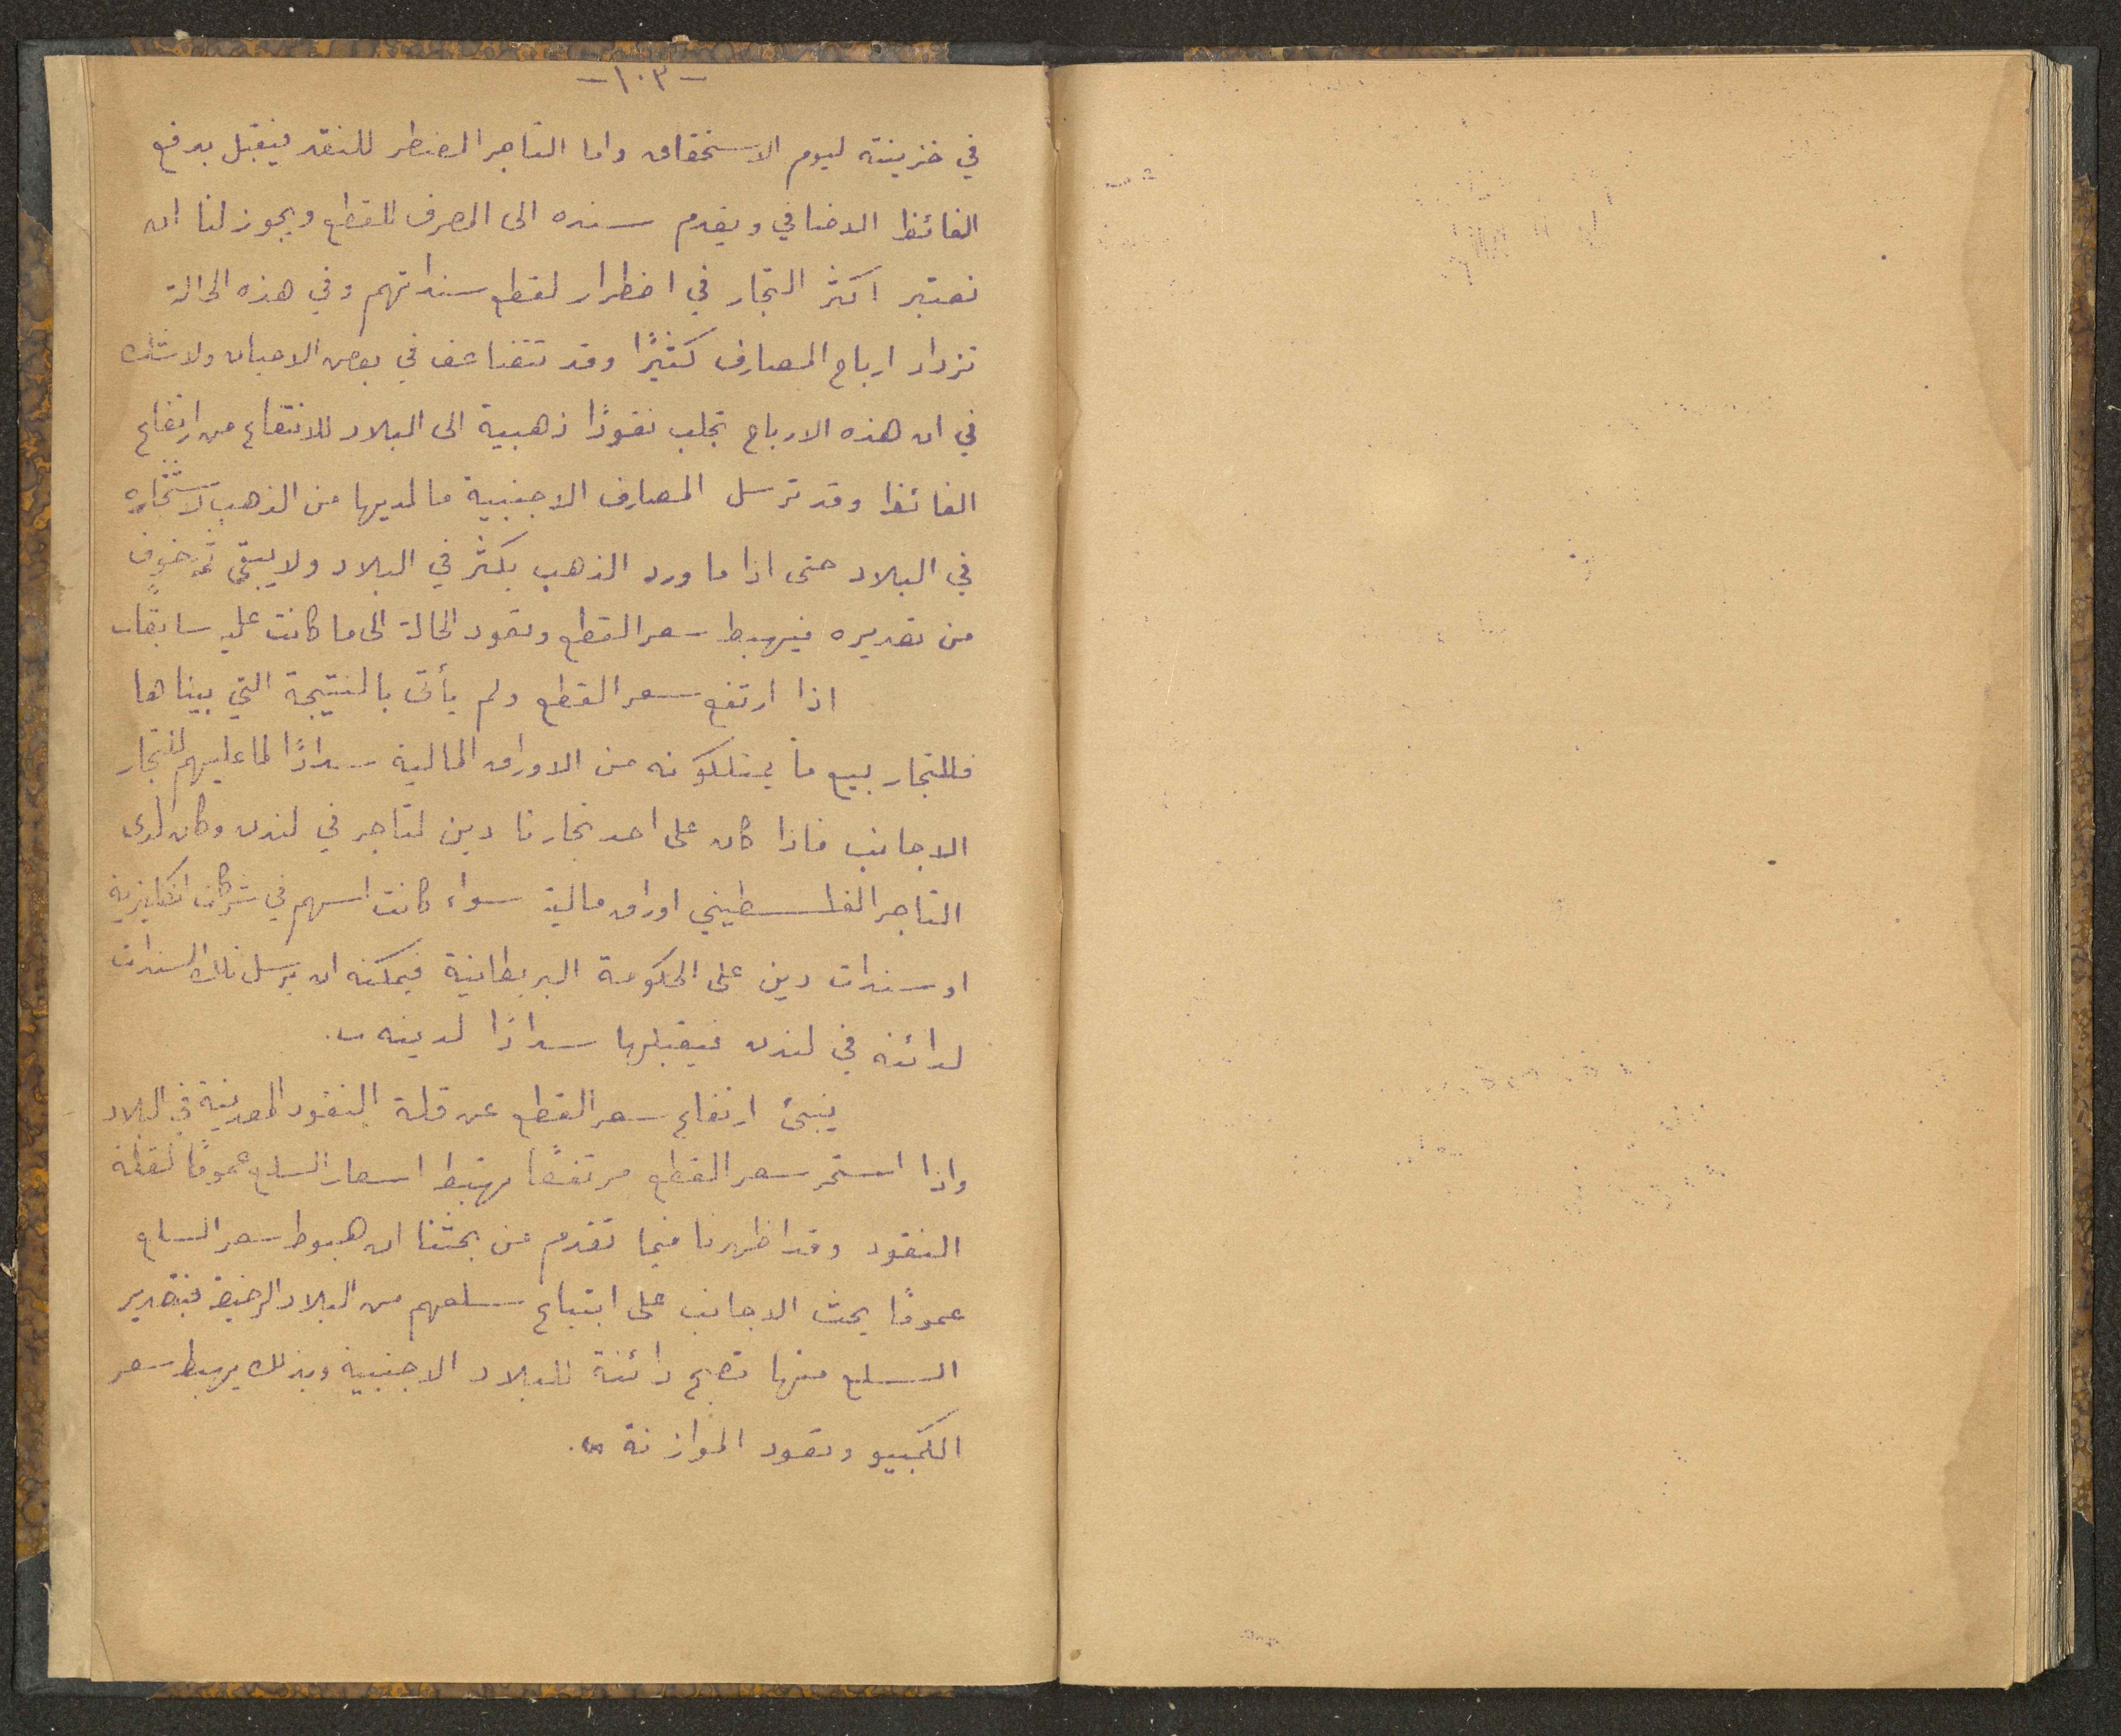 -١٠٣-
في خزينته ليوم الاستحقاق واما التاجر المضطر للنقد فيقبل بدفع
الفائظ الاضافي ويقدم سنده الى المصرف للقطع ويجوز لنا ان
نعتبر اكثر التجار في اضطرار لقطع سنداتهم وفي هذه الحالة
تزداد ارباح المصارف كثيرًا وقد تتضاعف في بعض الاحيان ولا شك
في ان هذه الارباح تجلب نقودًا ذهبية الى البلاد للانتفاع من ارتفاع
الفائظ وقد ترسل المصارف الاجنبية ما لديها من الذهب لاستثماره
في البلاد حتى اذا ما ورد الذهب بكثر في البلاد ولا يبقى ثمة خوف
من تصديره فيهبط سعر القطع وتعود الحالة الى ما كانت عليه سابقا
اذا ارتفع سعر القطع ولم يأت بالنتيجة التي بيناها
فللتجار بيع ما يمتلكونه من الاوراق المالية سدادًا لما عليهم لتجار
الاجانب فاذا كان على احد تجارنا دين لتاجر في لندن وكان لدى
التاجر الفلسطيني اوراق مالية سواء كانت اسهم في شركات انكليزية
او سندات دين على الحكومة البريطانية فيمكنه ان يرسل تلك السندات
لدائنه في لندن فيقبلها سدادًا لدينه .
ينبئ ارتفاع سعر القطع عن قلة النقود المعدنية في البلاد
واذا استمر سعر القطع مرتفعًا تهبط اسعار السلع عمومًا لقلة
النقود وقد اظهرنا فيما تقدم من بحثنا ان هبوط سعر السلع
عمومًا يحث الاجانب على ابتياع سلعهم من البلاد الرخيصة فبتصدير
السلع منها تصبح دائنة للبلاد الاجنبية وبذلك يهبط سعر
الكمبيو وتعود الموازنة .